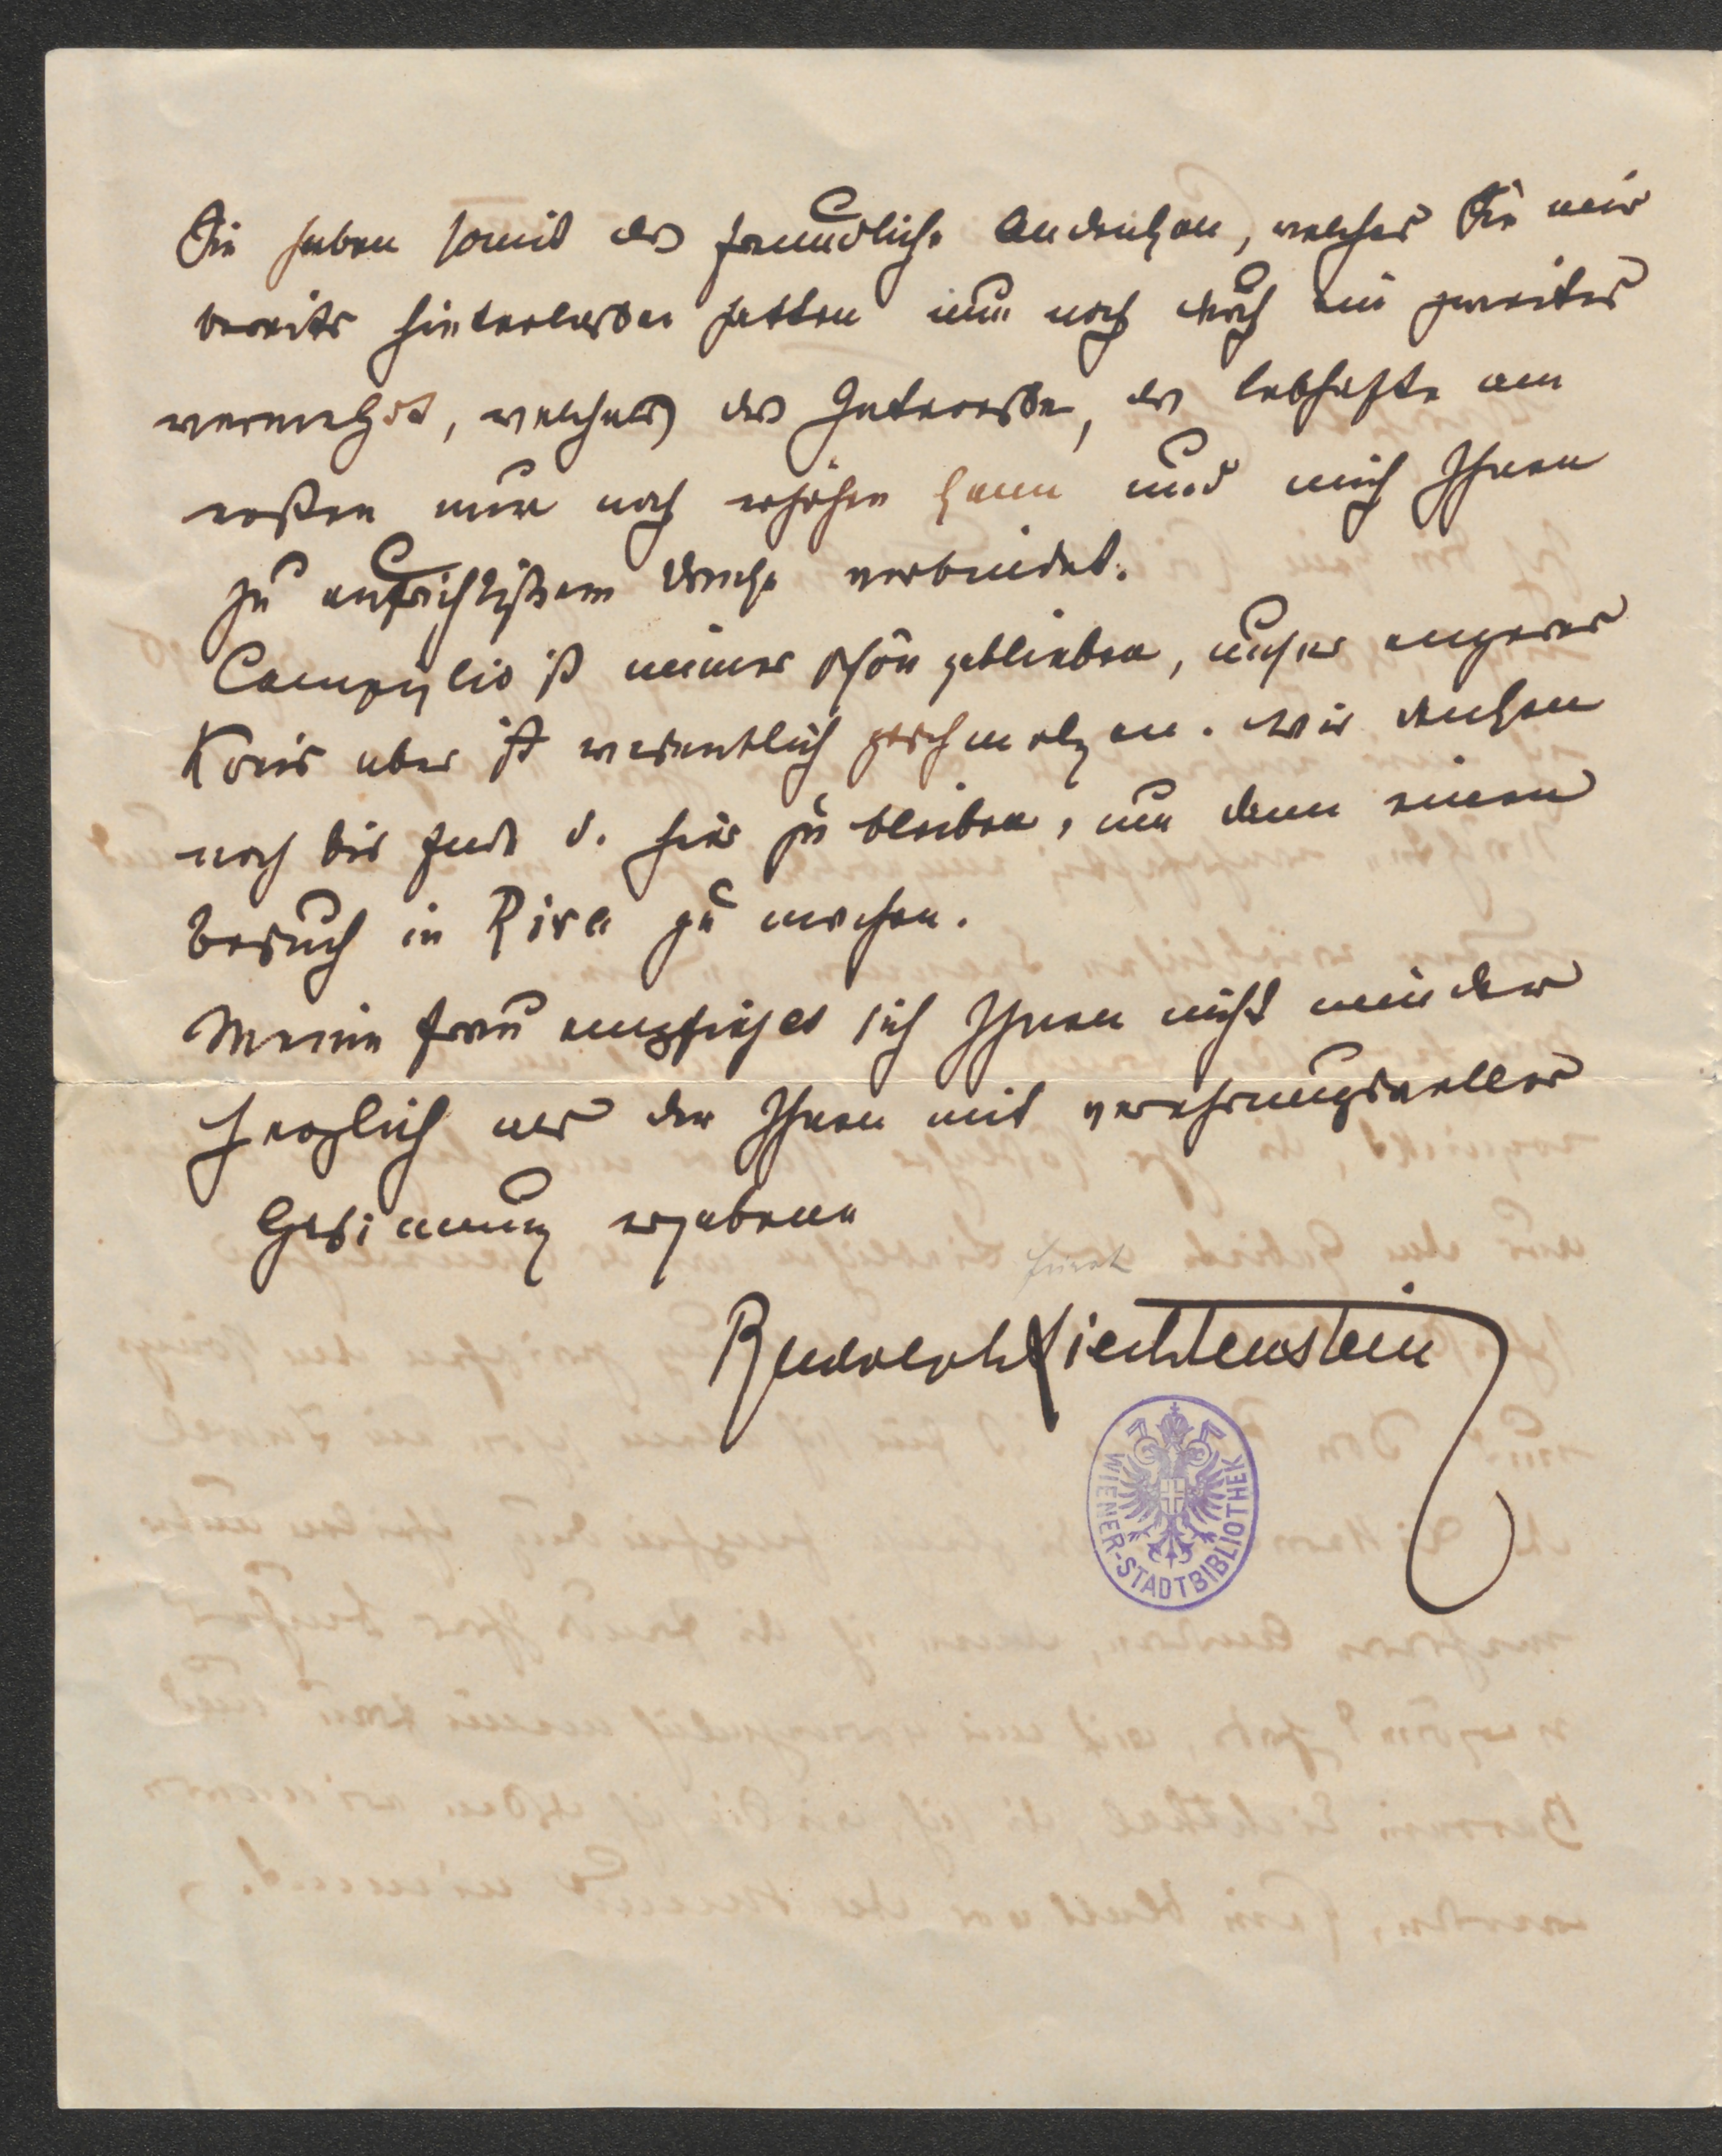 Sie haben somit das freundliche Andenken, welches Sie mir
bereits hinterlassen hatten nun noch durch ein zweites
vermehrt, welches das Interesse, das lebhafte am
ersten nur noch erhöhen kann und mich Ihnen
zu aufrichtigstem Danke verbindet.
Campiglio ist immer schön geblieben, unser engerer
Kreis aber ist wesentlich geschmolzen. Wir denken
noch bis Ende d. hier zu bleiben, um dann einen
Besuch in Riva zu machen.
Meine Frau empfiehlt sich Ihnen nicht minder
herzlich als der Ihnen mit verehrungsvoller
Gesinnung ergebene
Fürst
Rudolph Liechtenstein
WIENER-STADTBIBLIOTHEK